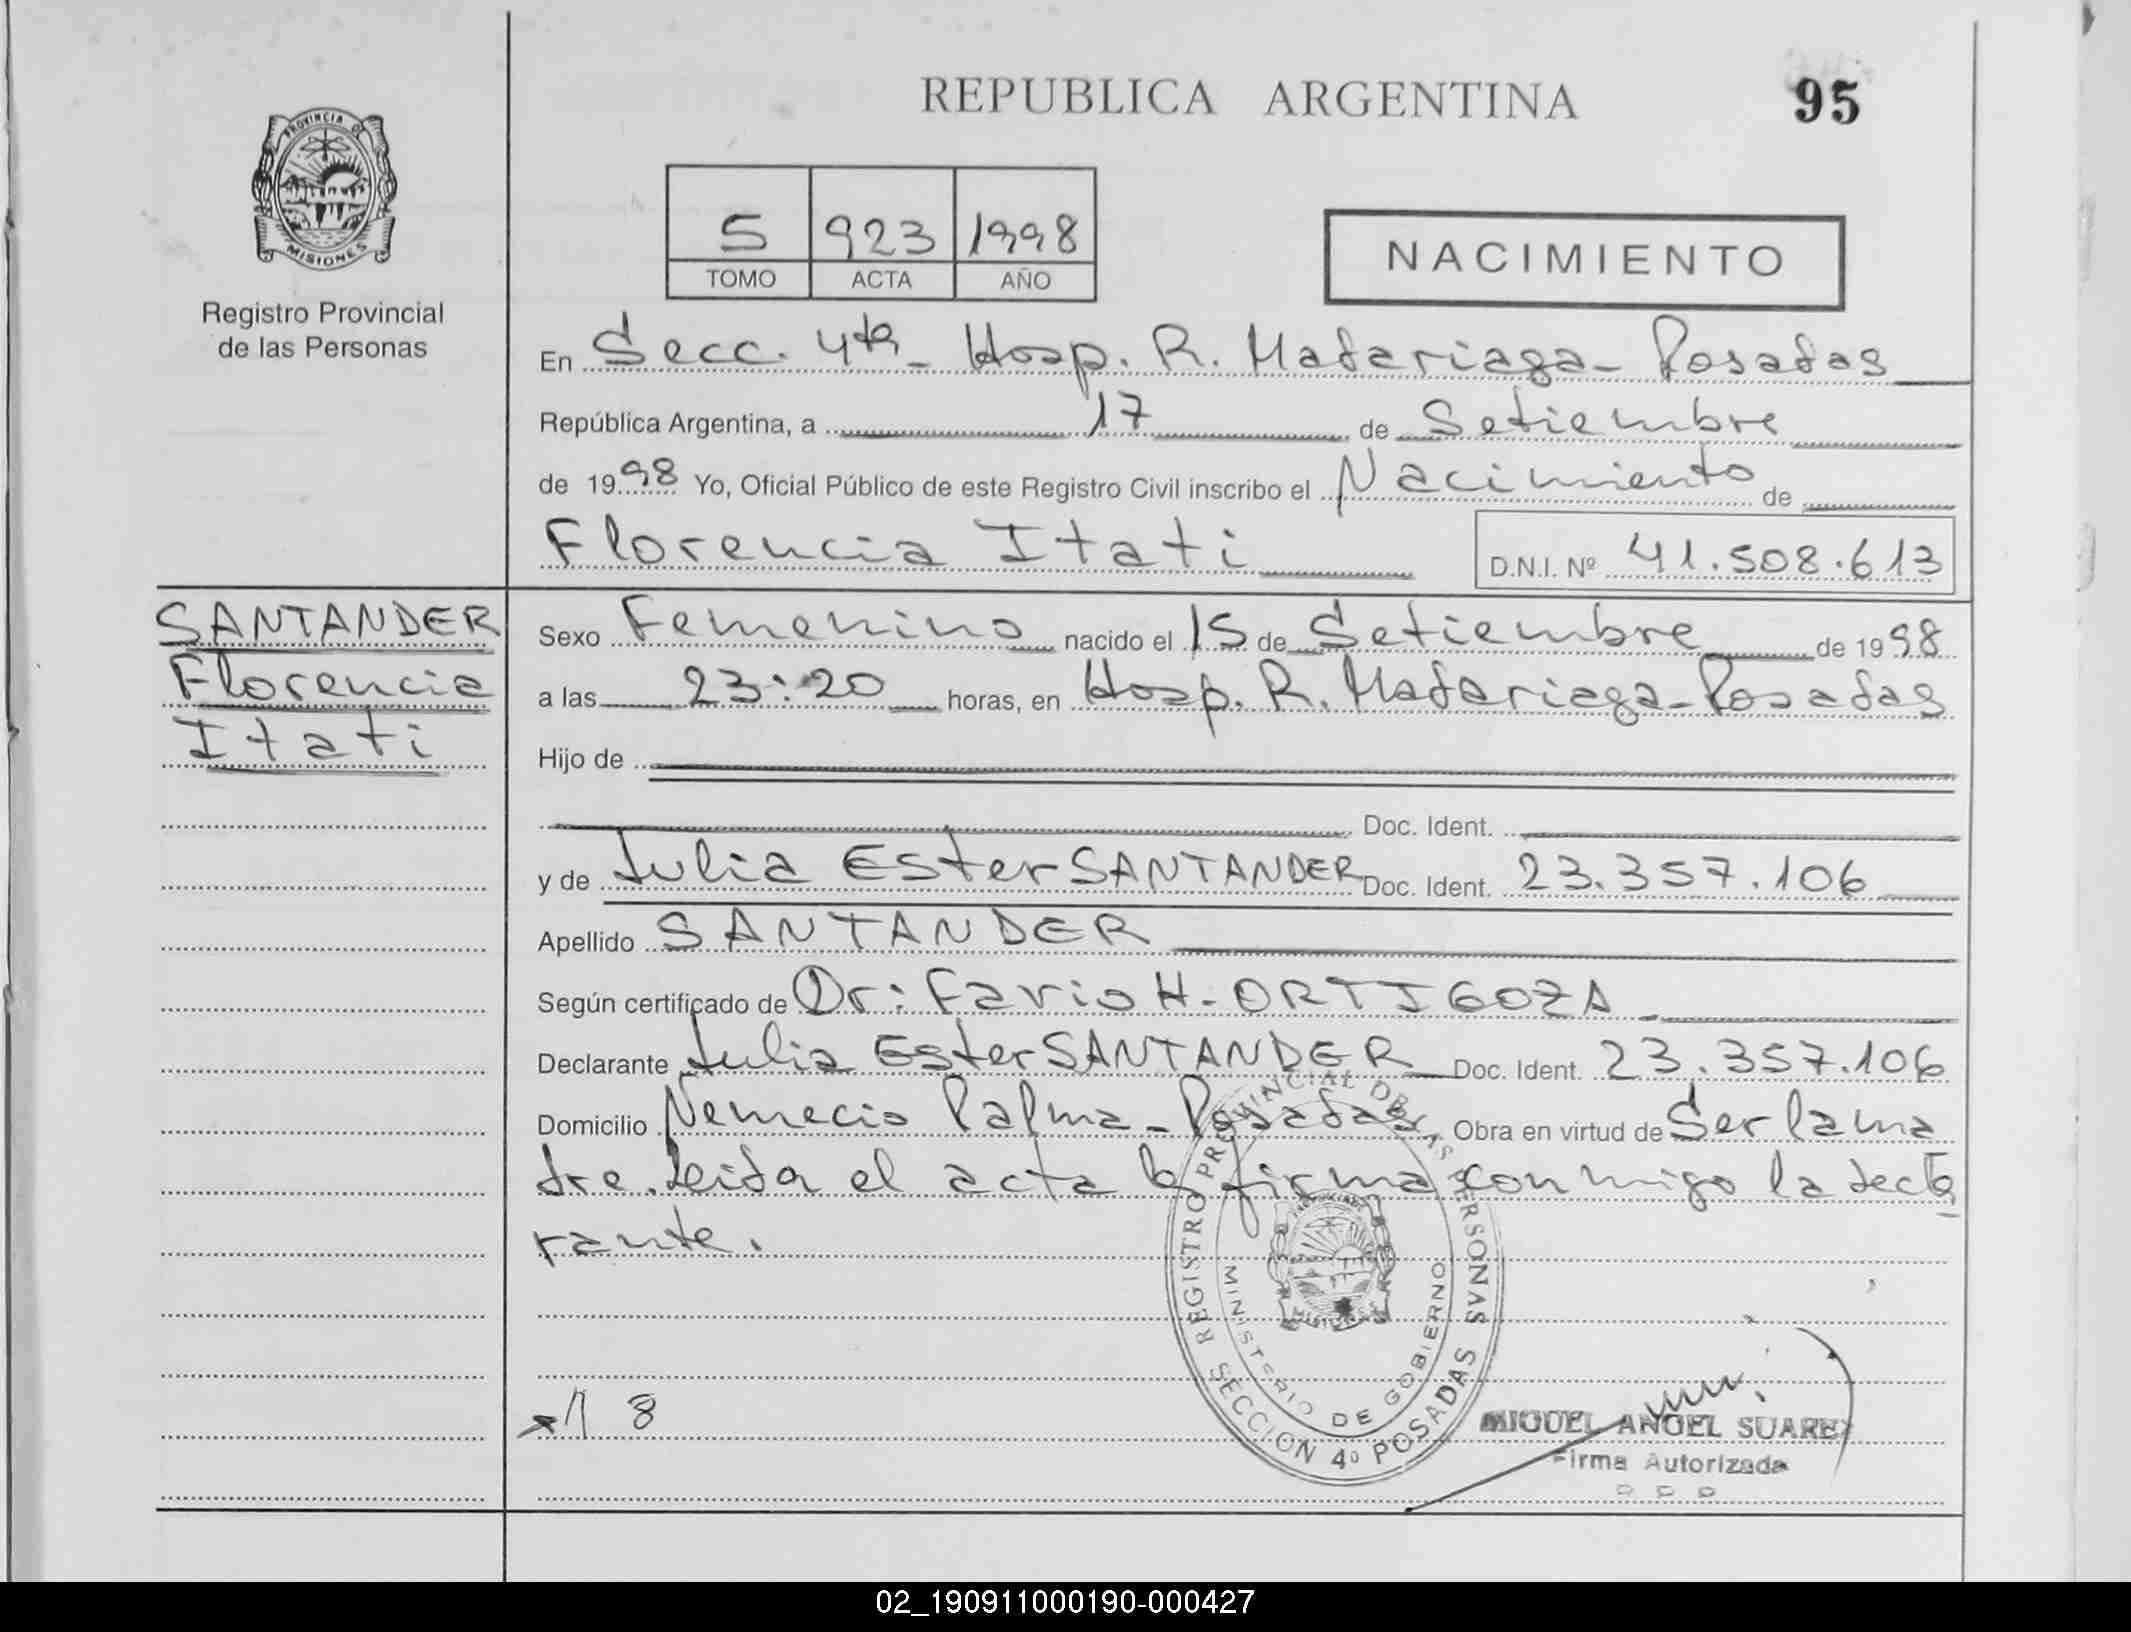 REPUBLICA ARGENTINA
95
PROVINCIA DE
MISIONES
Registro Provincial
de las Personas
5 923 1998
TOMO ACTA AÑO
NACIMIENTO
En Secc. 4ta - Hosp. R. Madariaga - Posadas
República Argentina, a 17 de Setiembre
de 1998 Yo, Oficial Público de este Registro Civil inscribo el Nacimiento de
Florencia Itati
D.N.I. Nº 41.508.613
SANTANDER
Florencia
Itati
Sexo Femenino nacido el 15 de Setiembre de 1998
a las 23:20 horas, en Hosp. R. Madariaga - Posadas
Hijo de
Doc. Ident.
y de Julia Ester SANTANDER Doc. Ident. 23.357.106
Apellido SANTANDER
Según certificado de Dr: Favio H. ORTIGOZA
Declarante Julia Ester SANTANDER Doc. Ident. 23.357.106
Domicilio Nemecio Palma - Posadas, Obra en virtud de Ser la ma
dre. Leida el acta la firma conmigo la decla
rante.
REGISTRO PROVINCIAL DE LAS PERSONAS
MINISTERIO DE GOBIERNO
SECCION 4º POSADAS
8
MIGUEL ANGEL SUAREZ
Firma Autorizada
02_190911000190-000427